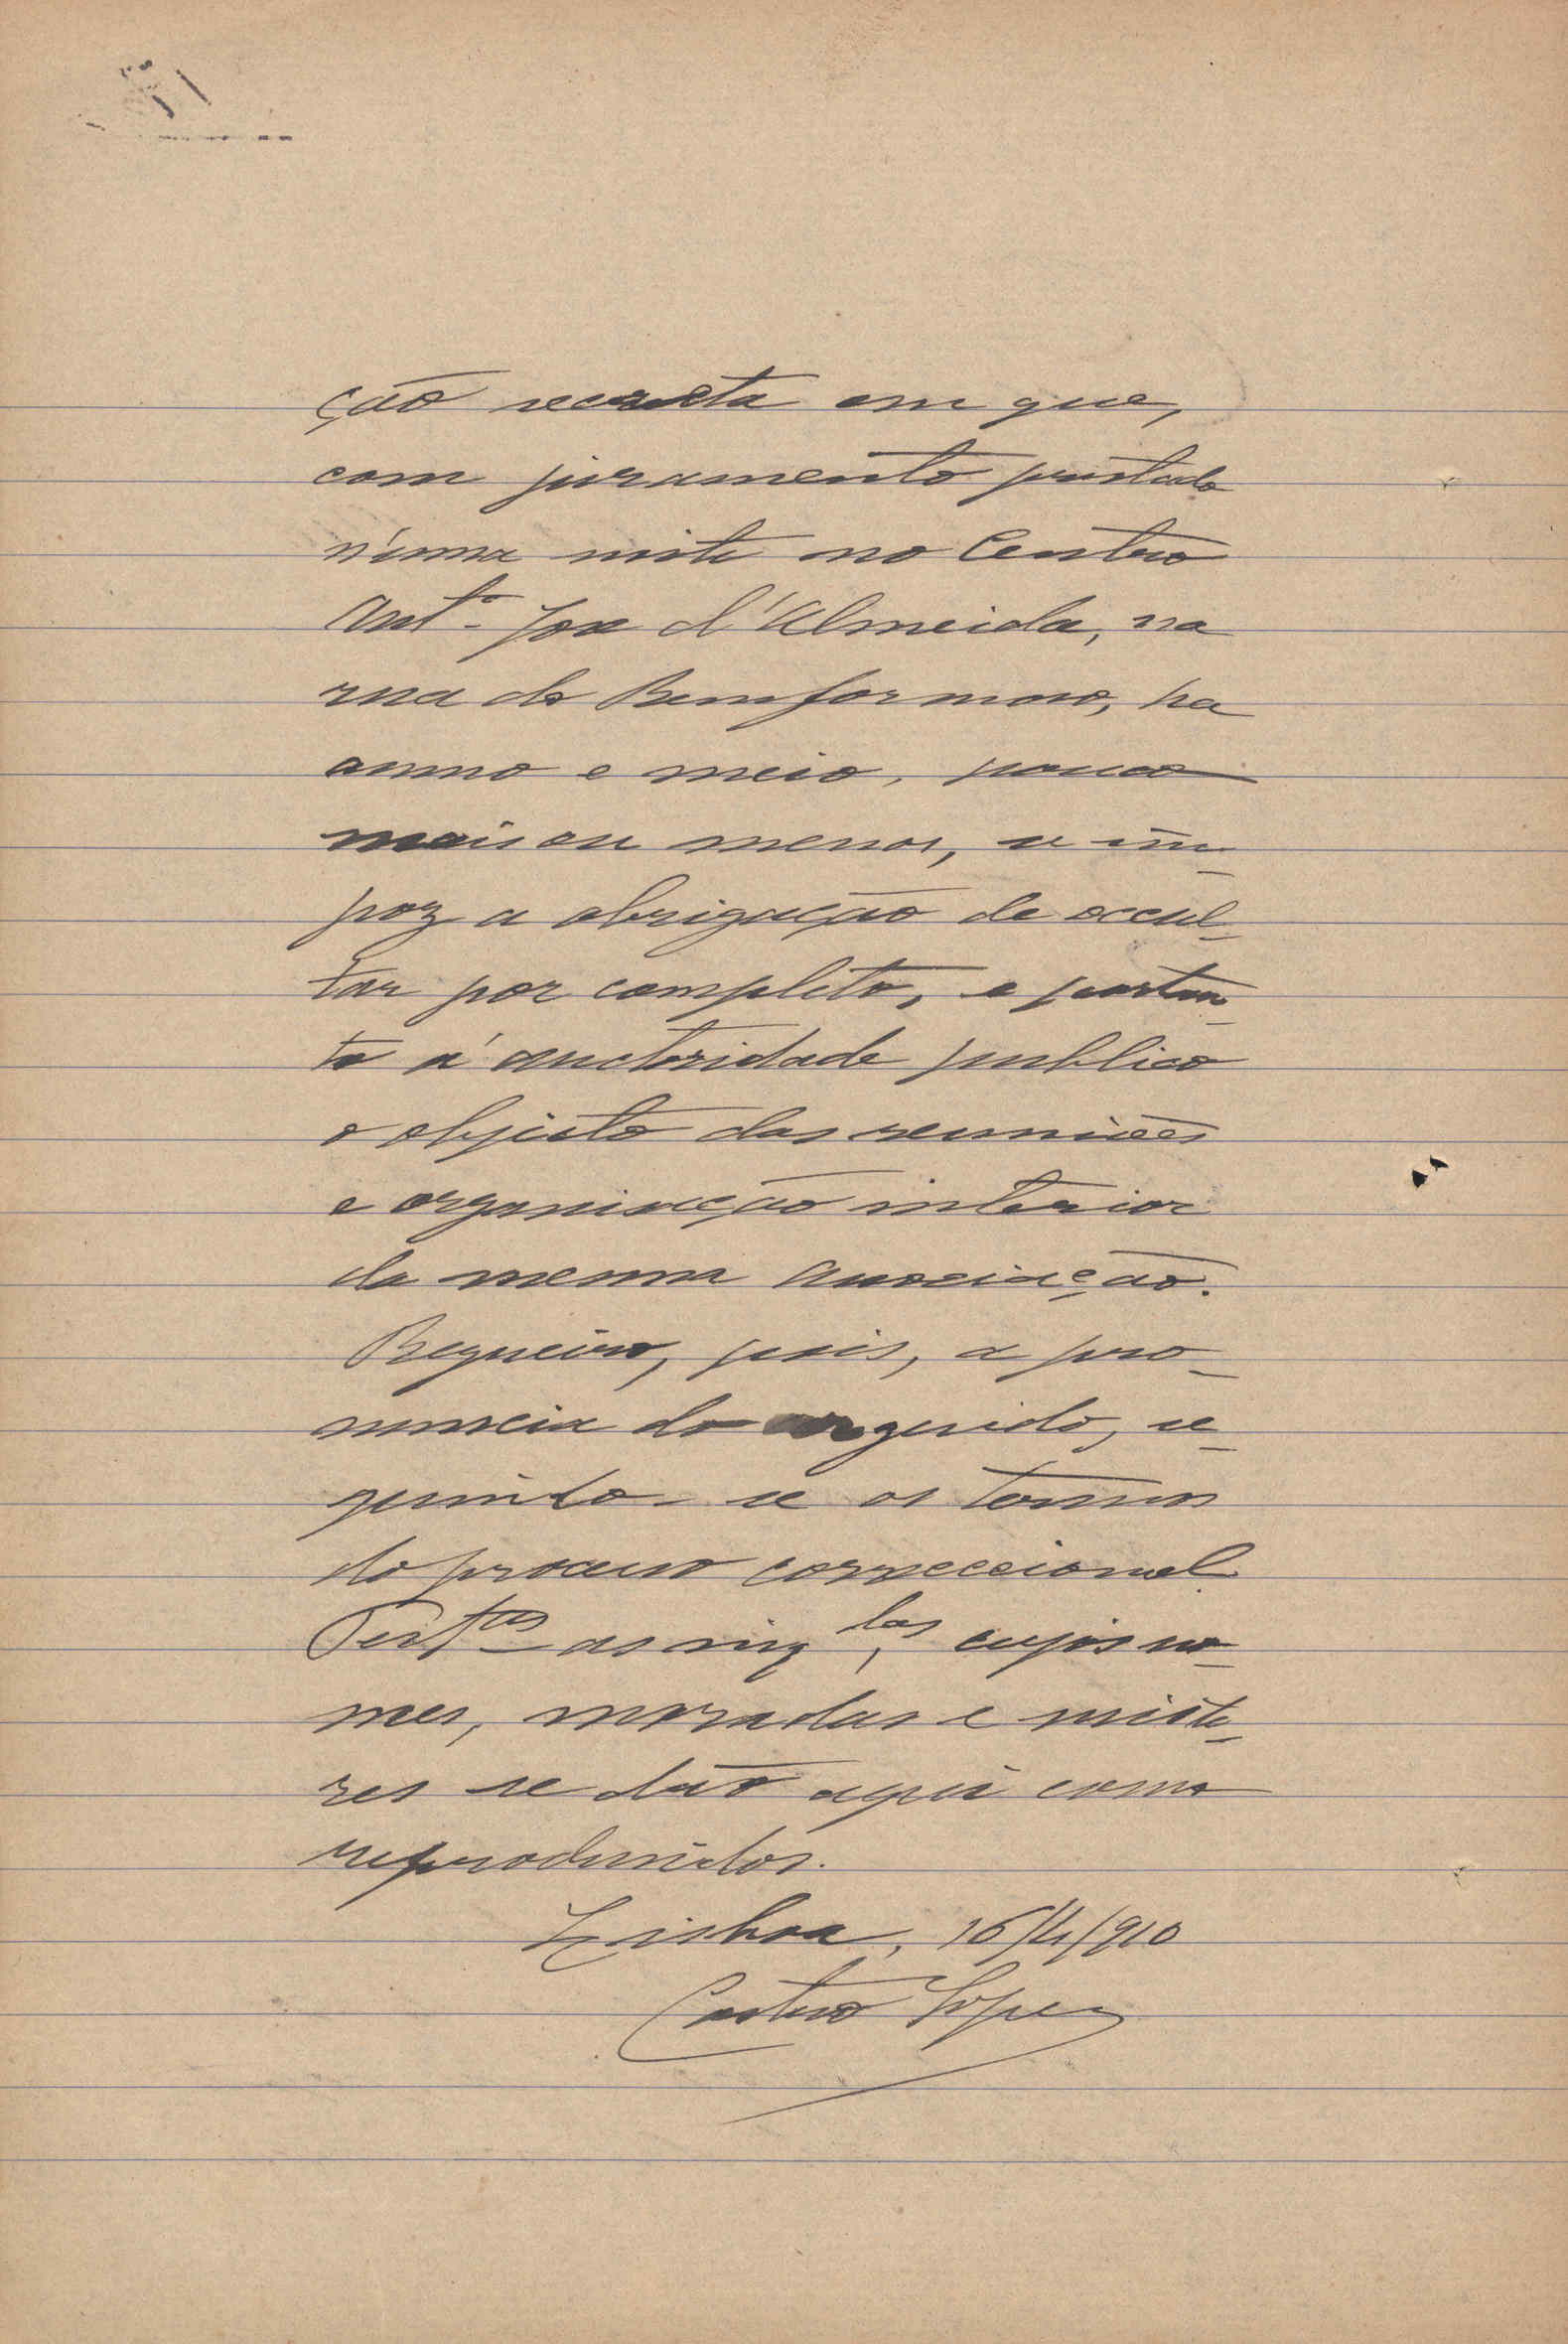 ção secreta em que,
com juramento prestado
n'uma noite no Centro
Antº José d'Almeida, na
rua do Bemformoso, ha
anno e meio, pouco
mais ou menos, se im-
poz a obrigação de occul-
tar por completo, e portan-
to á auctoridade publica
o objecto das reuniões
e organisação interior
da mesma associação.
Requeiro, pois, a pro-
nuncia do arguido, se-
guindo-se os termos
do processo correccional
Testas as inqdas, cujos no-
mes, moradas e miste-
res se dão aqui como
reproduzidos.
Lisboa, 16/4/910
Castro Lopes